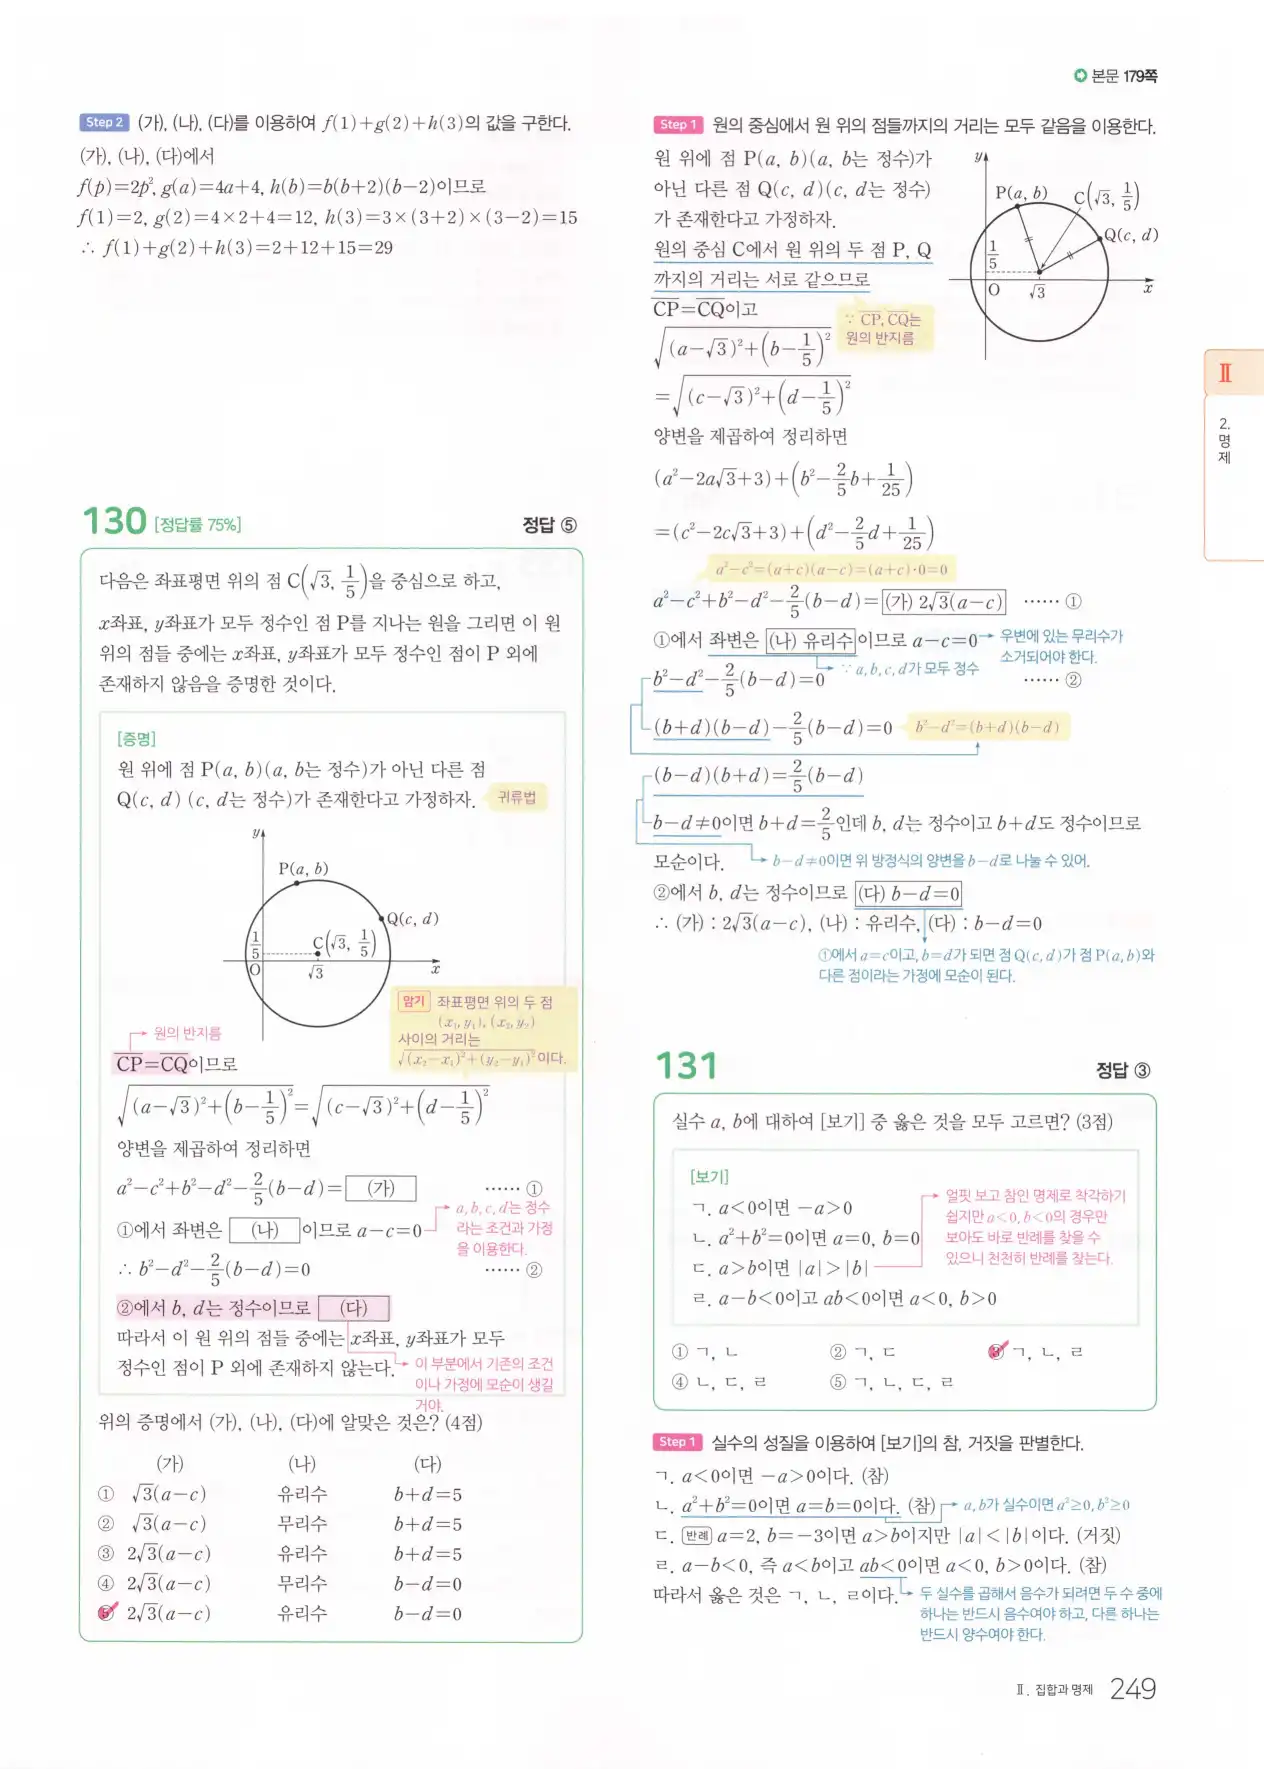 본문 179쪽
Step 2 (가), (나), (다)를 이용하여 f(1)+g(2)+h(3)의 값을 구한다.
(가), (나), (다)에서
f(p)=2p², g(a)=4a+4, h(b)=b(b+2)(b−2)이므로
f(1)=2, g(2)=4×2+4=12, h(3)=3×(3+2)×(3−2)=15
∴ f(1)+g(2)+h(3)=2+12+15=29
130 [정답률 75%] 정답 ⑤
다음은 좌표평면 위의 점 C(√3, 1/5)을 중심으로 하고,
x좌표, y좌표가 모두 정수인 점 P를 지나는 원을 그리면 이 원
위의 점들 중에는 x좌표, y좌표가 모두 정수인 점이 P 외에
존재하지 않음을 증명한 것이다.
[증명]
원 위에 점 P(a, b)(a, b는 정수)가 아닌 다른 점
Q(c, d) (c, d는 정수)가 존재한다고 가정하자. 귀류법
y
P(a, b)
Q(c, d)
C(√3, 1/5)
1/5
O √3 x
암기 좌표평면 위의 두 점
(x₁, y₁), (x₂, y₂)
사이의 거리는
√((x₂−x₁)²+(y₂−y₁)²)이다.
원의 반지름
CP=CQ이므로
√((a−√3)²+(b−1/5)²)=√((c−√3)²+(d−1/5)²)
양변을 제곱하여 정리하면
a²−c²+b²−d²−2/5(b−d)= (가) …… ①
①에서 좌변은 (나) 이므로 a−c=0
a, b, c, d는 정수
라는 조건과 가정
을 이용한다.
∴ b²−d²−2/5(b−d)=0 …… ②
②에서 b, d는 정수이므로 (다)
따라서 이 원 위의 점들 중에는 x좌표, y좌표가 모두
정수인 점이 P 외에 존재하지 않는다.
이 부분에서 기존의 조건
이나 가정에 모순이 생길
거야.
위의 증명에서 (가), (나), (다)에 알맞은 것은? (4점)
(가) (나) (다)
① √3(a−c) 유리수 b+d=5
② √3(a−c) 무리수 b+d=5
③ 2√3(a−c) 유리수 b+d=5
④ 2√3(a−c) 무리수 b−d=0
⑤ 2√3(a−c) 유리수 b−d=0
Step 1 원의 중심에서 원 위의 점들까지의 거리는 모두 같음을 이용한다.
원 위에 점 P(a, b)(a, b는 정수)가
아닌 다른 점 Q(c, d)(c, d는 정수)
가 존재한다고 가정하자.
원의 중심 C에서 원 위의 두 점 P, Q
까지의 거리는 서로 같으므로
CP=CQ이고
∵ CP, CQ는
원의 반지름
y
P(a, b) C(√3, 1/5)
Q(c, d)
1/5
O √3 x
√((a−√3)²+(b−1/5)²)
=√((c−√3)²+(d−1/5)²)
양변을 제곱하여 정리하면
(a²−2a√3+3)+(b²−2/5b+1/25)
=(c²−2c√3+3)+(d²−2/5d+1/25)
a²−c²=(a+c)(a−c)=(a+c)·0=0
a²−c²+b²−d²−2/5(b−d)=(가) 2√3(a−c) …… ①
①에서 좌변은 (나) 유리수이므로 a−c=0
우변에 있는 무리수가
소거되어야 한다.
∵ a, b, c, d가 모두 정수
b²−d²−2/5(b−d)=0 …… ②
(b+d)(b−d)−2/5(b−d)=0 b²−d²=(b+d)(b−d)
(b−d)(b+d)=2/5(b−d)
b−d≠0이면 b+d=2/5인데 b, d는 정수이고 b+d도 정수이므로
모순이다. b−d≠0이면 위 방정식의 양변을 b−d로 나눌 수 있어.
②에서 b, d는 정수이므로 (다) b−d=0
∴ (가) : 2√3(a−c), (나) : 유리수, (다) : b−d=0
①에서 a=c이고, b=d가 되면 점 Q(c, d)가 점 P(a, b)와
다른 점이라는 가정에 모순이 된다.
131 정답 ③
실수 a, b에 대하여 [보기] 중 옳은 것을 모두 고르면? (3점)
[보기]
ㄱ. a<0이면 −a>0
ㄴ. a²+b²=0이면 a=0, b=0
ㄷ. a>b이면 |a|>|b|
ㄹ. a−b<0이고 ab<0이면 a<0, b>0
얼핏 보고 참인 명제로 착각하기
쉽지만 a<0, b<0의 경우만
보아도 바로 반례를 찾을 수
있으니 천천히 반례를 찾는다.
① ㄱ, ㄴ ② ㄱ, ㄷ ③ ㄱ, ㄴ, ㄹ
④ ㄴ, ㄷ, ㄹ ⑤ ㄱ, ㄴ, ㄷ, ㄹ
Step 1 실수의 성질을 이용하여 [보기]의 참, 거짓을 판별한다.
ㄱ. a<0이면 −a>0이다. (참)
ㄴ. a²+b²=0이면 a=b=0이다. (참) a, b가 실수이면 a²≥0, b²≥0
ㄷ. 반례 a=2, b=−3이면 a>b이지만 |a|<|b|이다. (거짓)
ㄹ. a−b<0, 즉 a<b이고 ab<0이면 a<0, b>0이다. (참)
따라서 옳은 것은 ㄱ, ㄴ, ㄹ이다.
두 실수를 곱해서 음수가 되려면 두 수 중에
하나는 반드시 음수여야 하고, 다른 하나는
반드시 양수여야 한다.
Ⅱ
2.
명
제
Ⅱ. 집합과 명제 249